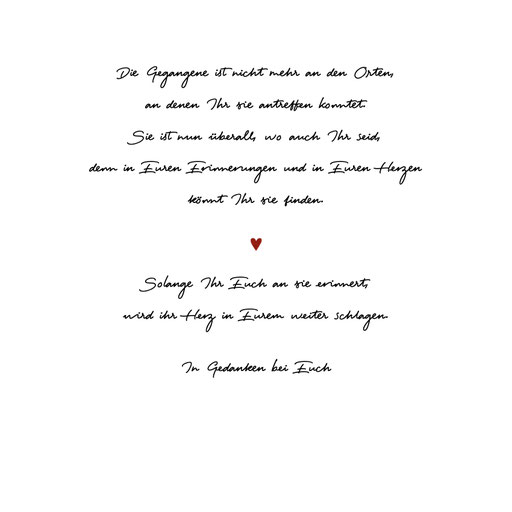 Die Gegangene ist nicht mehr an den Orten,
an denen Ihr sie antreffen konntet.
Sie ist nun überall, wo auch Ihr seid,
denn in Euren Erinnerungen und in Euren Herzen
könnt Ihr sie finden.
Solange Ihr Euch an sie erinnert,
wird ihr Herz in Eurem weiter schlagen.
In Gedanken bei Euch